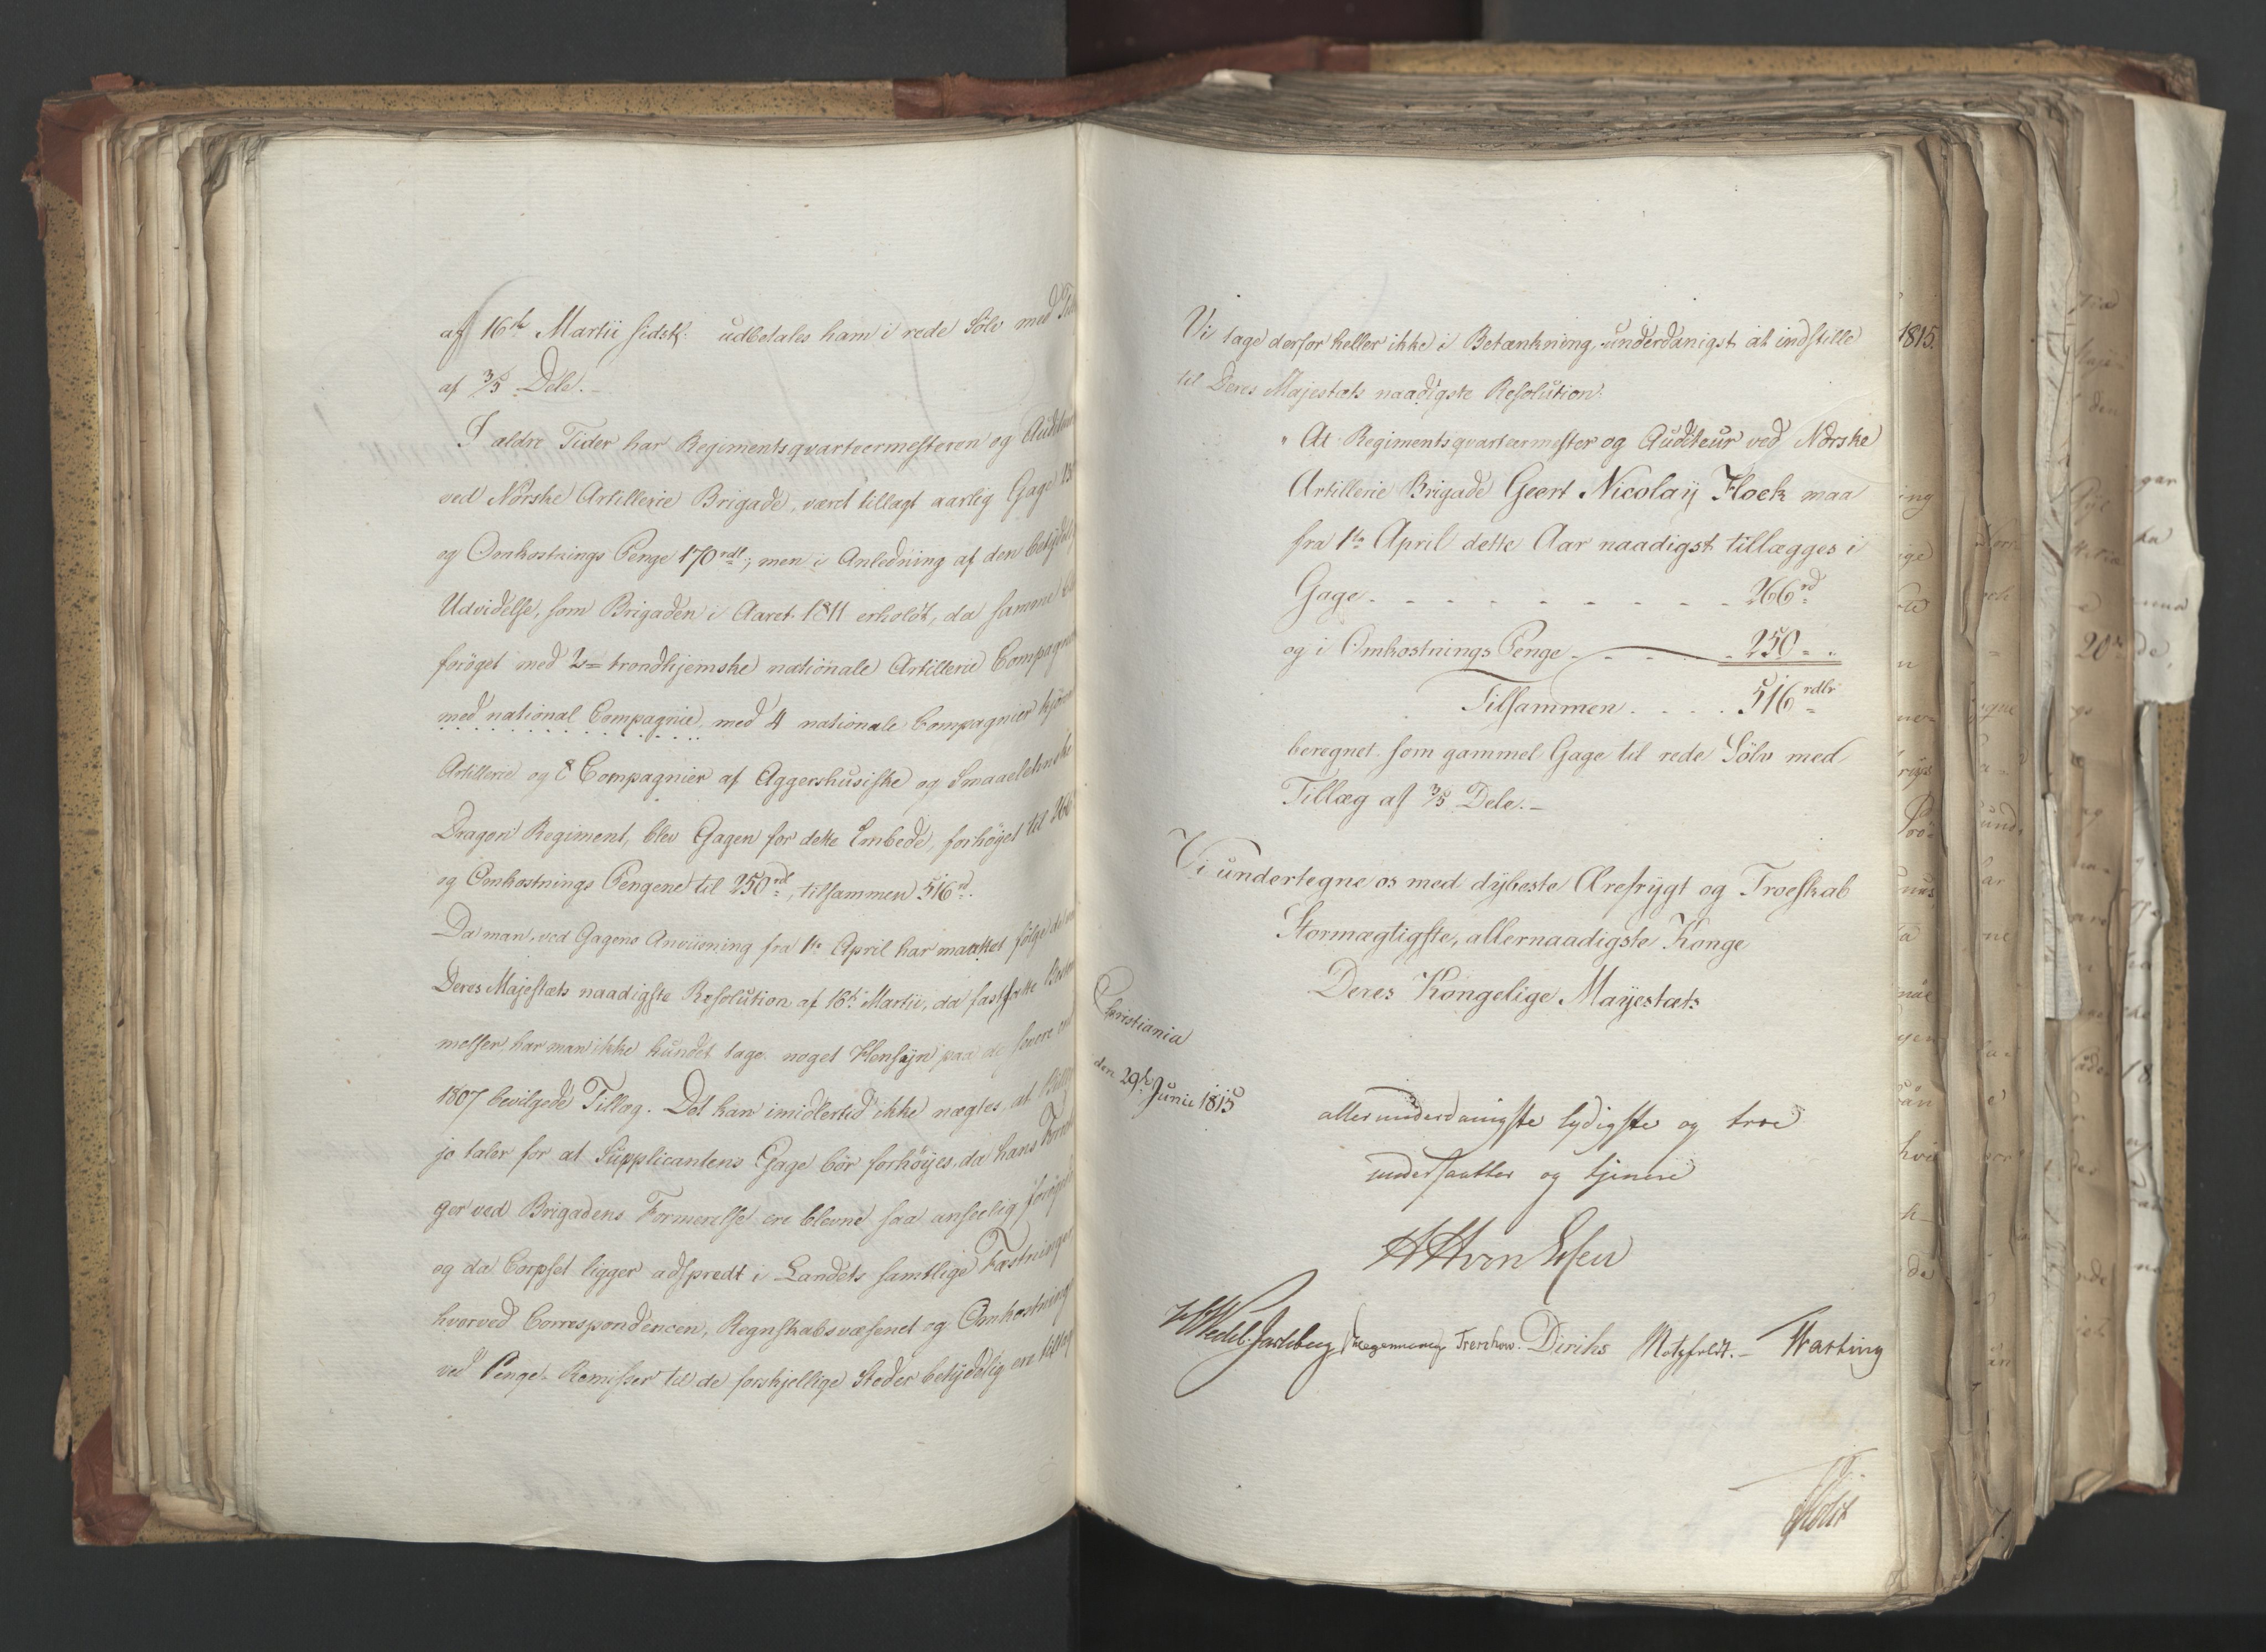 af 16de Martii sidstl: udbetales ham i rede Sölv med
af 3/5 Dele.-
I ældre Tider har Regimentsqvarteermesteren og
ved Norske Artillerie Brigade, været tillagt aarlig Gage
og Omkostnings Penge 170 rdl; men i Anledning af den
Udvidelse, som Brigaden i Aaret 1811 erholdt, da samme
forøget med 2de trondhjemske nationale Artillerie
med national Compagnie, med 4 nationale Compagnier
Artillerie og 8 Compagnier af Aggershusiske og Smaalehnske
Dragon Regiment, blev Gagen for dette Embede, forhöyet til 266
og Omkostnings Pengene til 250 rdl, tilsammen 516 rd.
Da man, ved Gagens Anviisning fra 1ste April har maattet fölge
Deres Majestæts naadigste Resolution af 16de Martii, da fastsatte
melser, har man ikke kundet tage noget Hensyn paa de
1807 bevilgede Tillæg. Det kan imidlertid ikke nægtes, at
jo taler for at Supplicantens Gage bör forhöyes, da hans
ger ved Brigadens Formerelse ere blevne saa anseelig
og da Corpset ligger adspredt i Landets samtlige Fæstninger
hvorved Correspondencen, Regnskabsvæsenet og
ved Penge Remisser til de forskjellige Steder betydelig ere
Vi tage derfor heller ikke i Betænkning, underdanigst at indstille
til Deres Majestæts naadigste Resolution:
" At Regimentsqvarteermester og Auditeur ved Norske
Artillerie Brigade Geert Nicolay Flock maa
fra 1ste April dette Aar naadigst tillægges i
Gage - - - - - - - - - - 266 rd
og i Omkostnings Penge - - - 250 - .
Tilsammen . . . . 516 rdlr
beregnet som gammel Gage til rede Sölv med
Tillæg af 3/5 Dele.-
Vi undertegne os med dybeste Ærefrygt og Troeskab
Stormægtigste, allernaadigste Konge
Deres Kongelige Mayestæts
Christiania
den 29de Junii 1815
allerunderdanigste lydigste og troe
undersaatter og tjenere
HH von Essen
Wedel Jarlsberg Hegermann Treschow. Diriks Motzfeldt.- Wasting
Holst
1815.